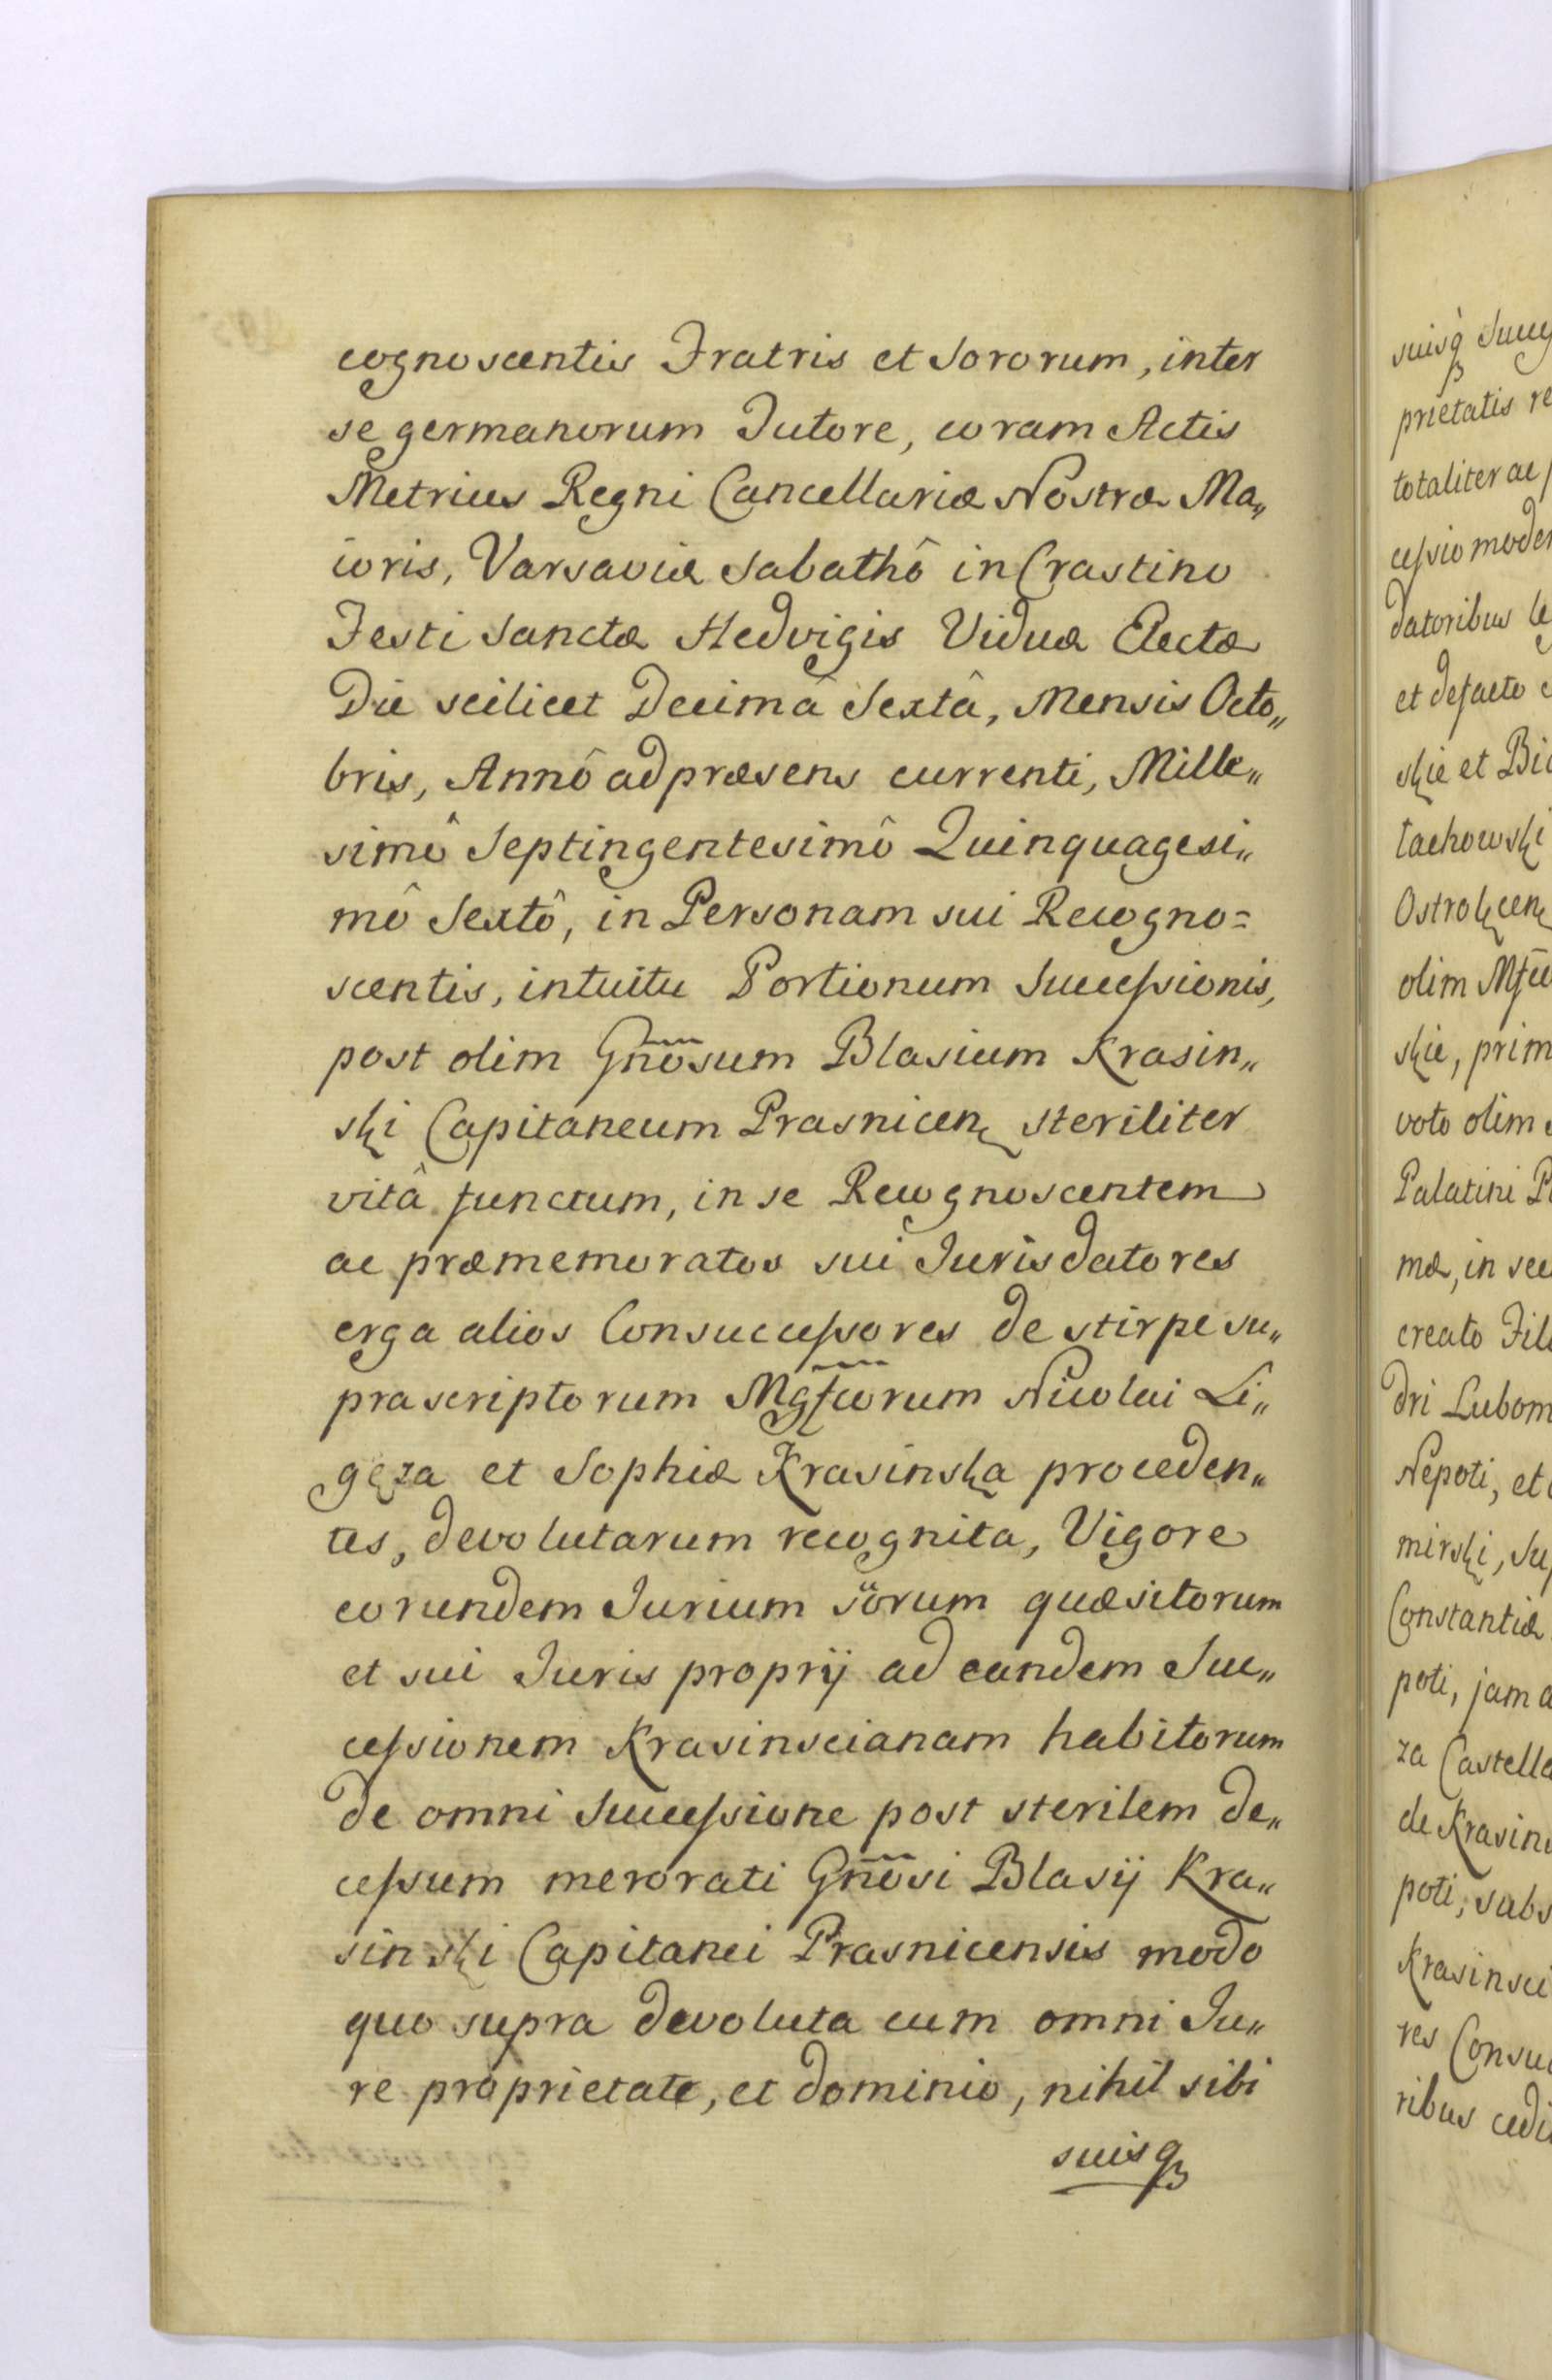 cognoscentis Fratris et Sororum, inter
se germanorum Tutore, coram Actis
Metrices Regni Cancellariæ Nostræ Ma„
ioris, Varsaviæ Sabathô in Crastino
Festi Sanctæ Hedvigis Viduæ Electæ
Die scilicet Decimâ Sextâ, Mensis Octo„
bris, Annô ad præsens currenti, Mille„
simô Septingentesimô Quinquagesi„
mô Sextô, in Personam sui Recogno=
scentis, intuitu Portionum Successionis,
post olim Gnõsum Blasium Krasin„
ski Capitaneum Prasnicen steriliter
vitâ functum, in se Recognoscentem
ac præmemoratos sui Juris datores
erga alios Consuccessores de stirpe su„
prascriptorum Mgfcorum Nicolai Li„
gęza et Sophiæ Krasinska proceden„
tes, devolutarum recognita, Vigore
eorundem Jurium sörum quæsitorum
et sui Juris proprij ad eandem Suc„
cessionem Krasinscianam habitorum
de omni Successione post sterilem de„
cessum merorati Gnõsi Blasij Kra„
sinski Capitanei Prasnicensis modo
quo supra devoluta cum omni Ju„
re proprietate, et dominio, nihil sibi
suisq
suisq
prietatis re
totaliter ac
cessio moder
datoribus
et defacto
skie et
tachowski
Ostrołęcen
olim
skie, prim
voto olim
Palatini
mæ, in
creato
dri Lubom
Nepoti, et
mirski,
Constantiæ
poti, jam
za Castella
de Krasin
poti, subs
Krasinsci
res Consuc
ribus